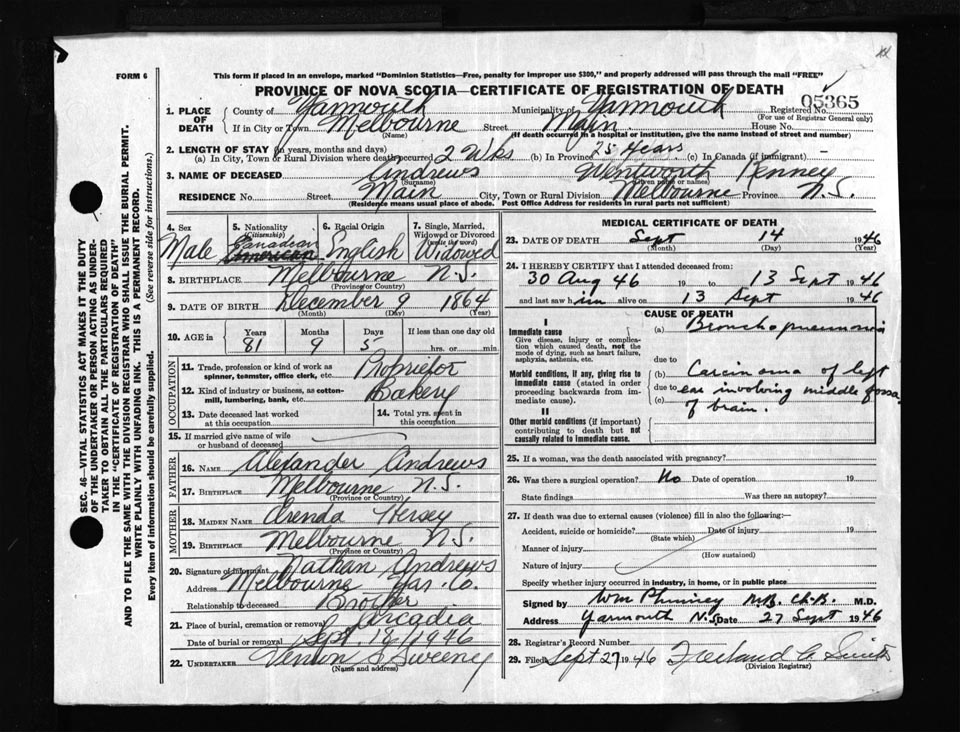 FORM 6
This form if placed in an envelope, marked "Dominion Statistics—Free, penalty for improper use $300," and properly addressed will pass through the mail "FREE"
PROVINCE OF NOVA SCOTIA—CERTIFICATE OF REGISTRATION OF DEATH
05365
1. PLACE OF DEATH County of Yarmouth Municipality of Yarmouth Registered No.
(For use of Registrar General only)
If in City or Town Melbourne Street Main House No.
(Name) (If death occurred in a hospital or institution, give the name instead of street and number)
2. LENGTH OF STAY (in years, months and days)
(a) In City, Town or Rural Division where death occurred 2 Wks (b) In Province 25 Years (c) In Canada (if immigrant) —
3. NAME OF DECEASED Andrews Wentworth Kenney
(Surname) (Given name or names)
RESIDENCE No. Street Main City, Town or Rural Division Melbourne Province N.S.
(Residence means usual place of abode. Post Office Address for residents in rural parts not sufficient)
SEC. 46—VITAL STATISTICS ACT MAKES IT THE DUTY
OF THE UNDERTAKER OR PERSON ACTING AS UNDER-
TAKER TO OBTAIN ALL THE PARTICULARS REQUIRED
IN THE "CERTIFICATE OF REGISTRATION OF DEATH"
AND TO FILE THE SAME WITH THE DIVISION REGISTRAR WHO SHALL ISSUE THE BURIAL PERMIT.
WRITE PLAINLY WITH UNFADING INK. THIS IS A PERMANENT RECORD.
Every item of information should be carefully supplied. (See reverse side for instructions.)
4. Sex 5. Nationality (Citizenship) 6. Racial Origin 7. Single, Married, Widowed or Divorced (write the word)
Male Canadian American English Widowed
8. BIRTHPLACE Melbourne N.S.
(Province or Country)
9. DATE OF BIRTH December 9 1864
(Month) (Day) (Year)
10. AGE in Years Months Days If less than one day old
81 9 5 hrs. or min.
OCCUPATION
11. Trade, profession or kind of work as spinner, teamster, office clerk, etc. Proprietor
12. Kind of industry or business, as cotton-mill, lumbering, bank, etc. Bakery
13. Date deceased last worked at this occupation 14. Total yrs. spent in this occupation
15. If married give name of wife or husband of deceased
FATHER
16. NAME Alexander Andrews
17. BIRTHPLACE Melbourne N.S.
(Province or Country)
MOTHER
18. MAIDEN NAME Arenda Hersey
19. BIRTHPLACE Melbourne N.S.
(Province or Country)
20. Signature of informant Nathan Andrews
Address Melbourne Yar. Co.
Relationship to deceased Brother
21. Place of burial, cremation or removal Arcadia
Date of burial or removal Sept 18/1946
22. UNDERTAKER Vernon S Sweeny
(Name and address)
MEDICAL CERTIFICATE OF DEATH
23. DATE OF DEATH Sept 14 1946
(Month) (Day) (Year)
24. I HEREBY CERTIFY that I attended deceased from:
30 Aug 46 19 to 13 Sept 1946
and last saw him alive on 13 Sept 1946
CAUSE OF DEATH
I
Immediate cause (a) Bronchopneumonia
Give disease, injury or complication which caused death, not the mode of dying, such as heart failure, asphyxia, asthenia, etc.
due to
Morbid conditions, if any, giving rise to immediate cause (stated in order proceeding backwards from immediate cause).
(b) Carcinoma of left
due to ear involving middle fossa
(c) of brain.
II
Other morbid conditions (if important) contributing to death but not causally related to immediate cause.
25. If a woman, was the death associated with pregnancy?
26. Was there a surgical operation? No Date of operation 19
State findings Was there an autopsy?
27. If death was due to external causes (violence) fill in also the following:—
Accident, suicide or homicide? Date of injury 19
(State which)
Manner of injury
(How sustained)
Nature of injury
Specify whether injury occurred in industry, in home, or in public place
Signed by Wm Phinney M.B. Ch.B. M.D.
Address Yarmouth N.S. Date 27 Sept 1946
28. Registrar's Record Number
29. Filed Sept 27 1946 Freeland A. Smith
(Division Registrar)